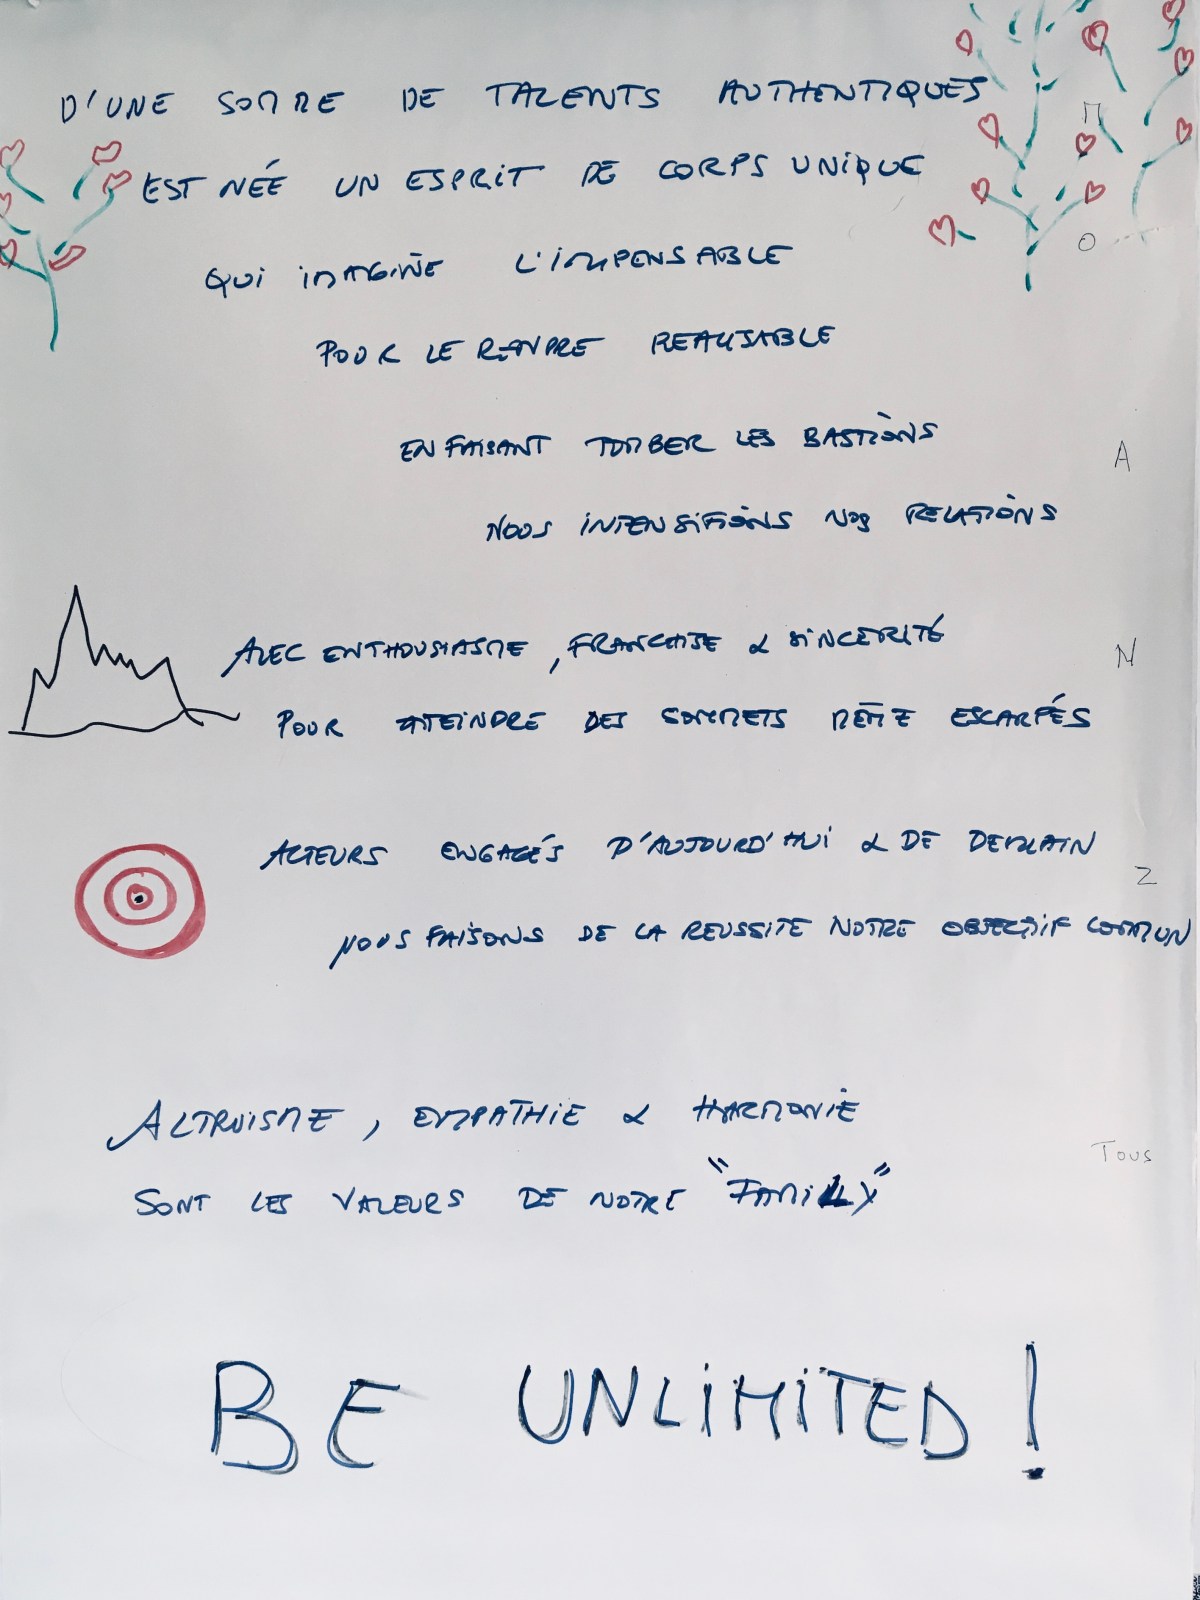 D'UNE SOMME DE TALENTS AUTHENTIQUES
M
EST NÉE UN ESPRIT DE CORPS UNIQUE
O
QUI IMAGINE L'IMPENSABLE
POUR LE RENDRE REALISABLE
EN FAISANT TOMBER LES BASTIONS
A
NOUS INTENSIFIONS NOS RELATIONS
AVEC ENTHOUSIASME, FRANCHISE & SINCERITÉ
N
POUR ATTEINDRE DES SOMMETS MÊME ESCARPÉS
ACTEURS ENGAGÉS D'AUJOURD'HUI & DE DEMAIN
Z
NOUS FAISONS DE LA REUSSITE NOTRE OBJECTIF COMMUN
ALTRUISME, EMPATHIE & HARMONIE
TOUS
SONT LES VALEURS DE NOTRE "FAMILY"
BE UNLIMITED!